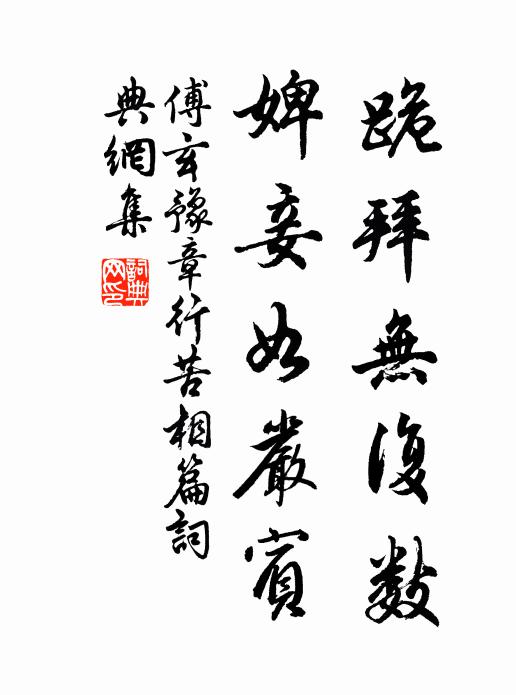 跪拜無復數
婢妾如嚴賓
傅玄豫章行苦相篇詞
典網集
詞典網印